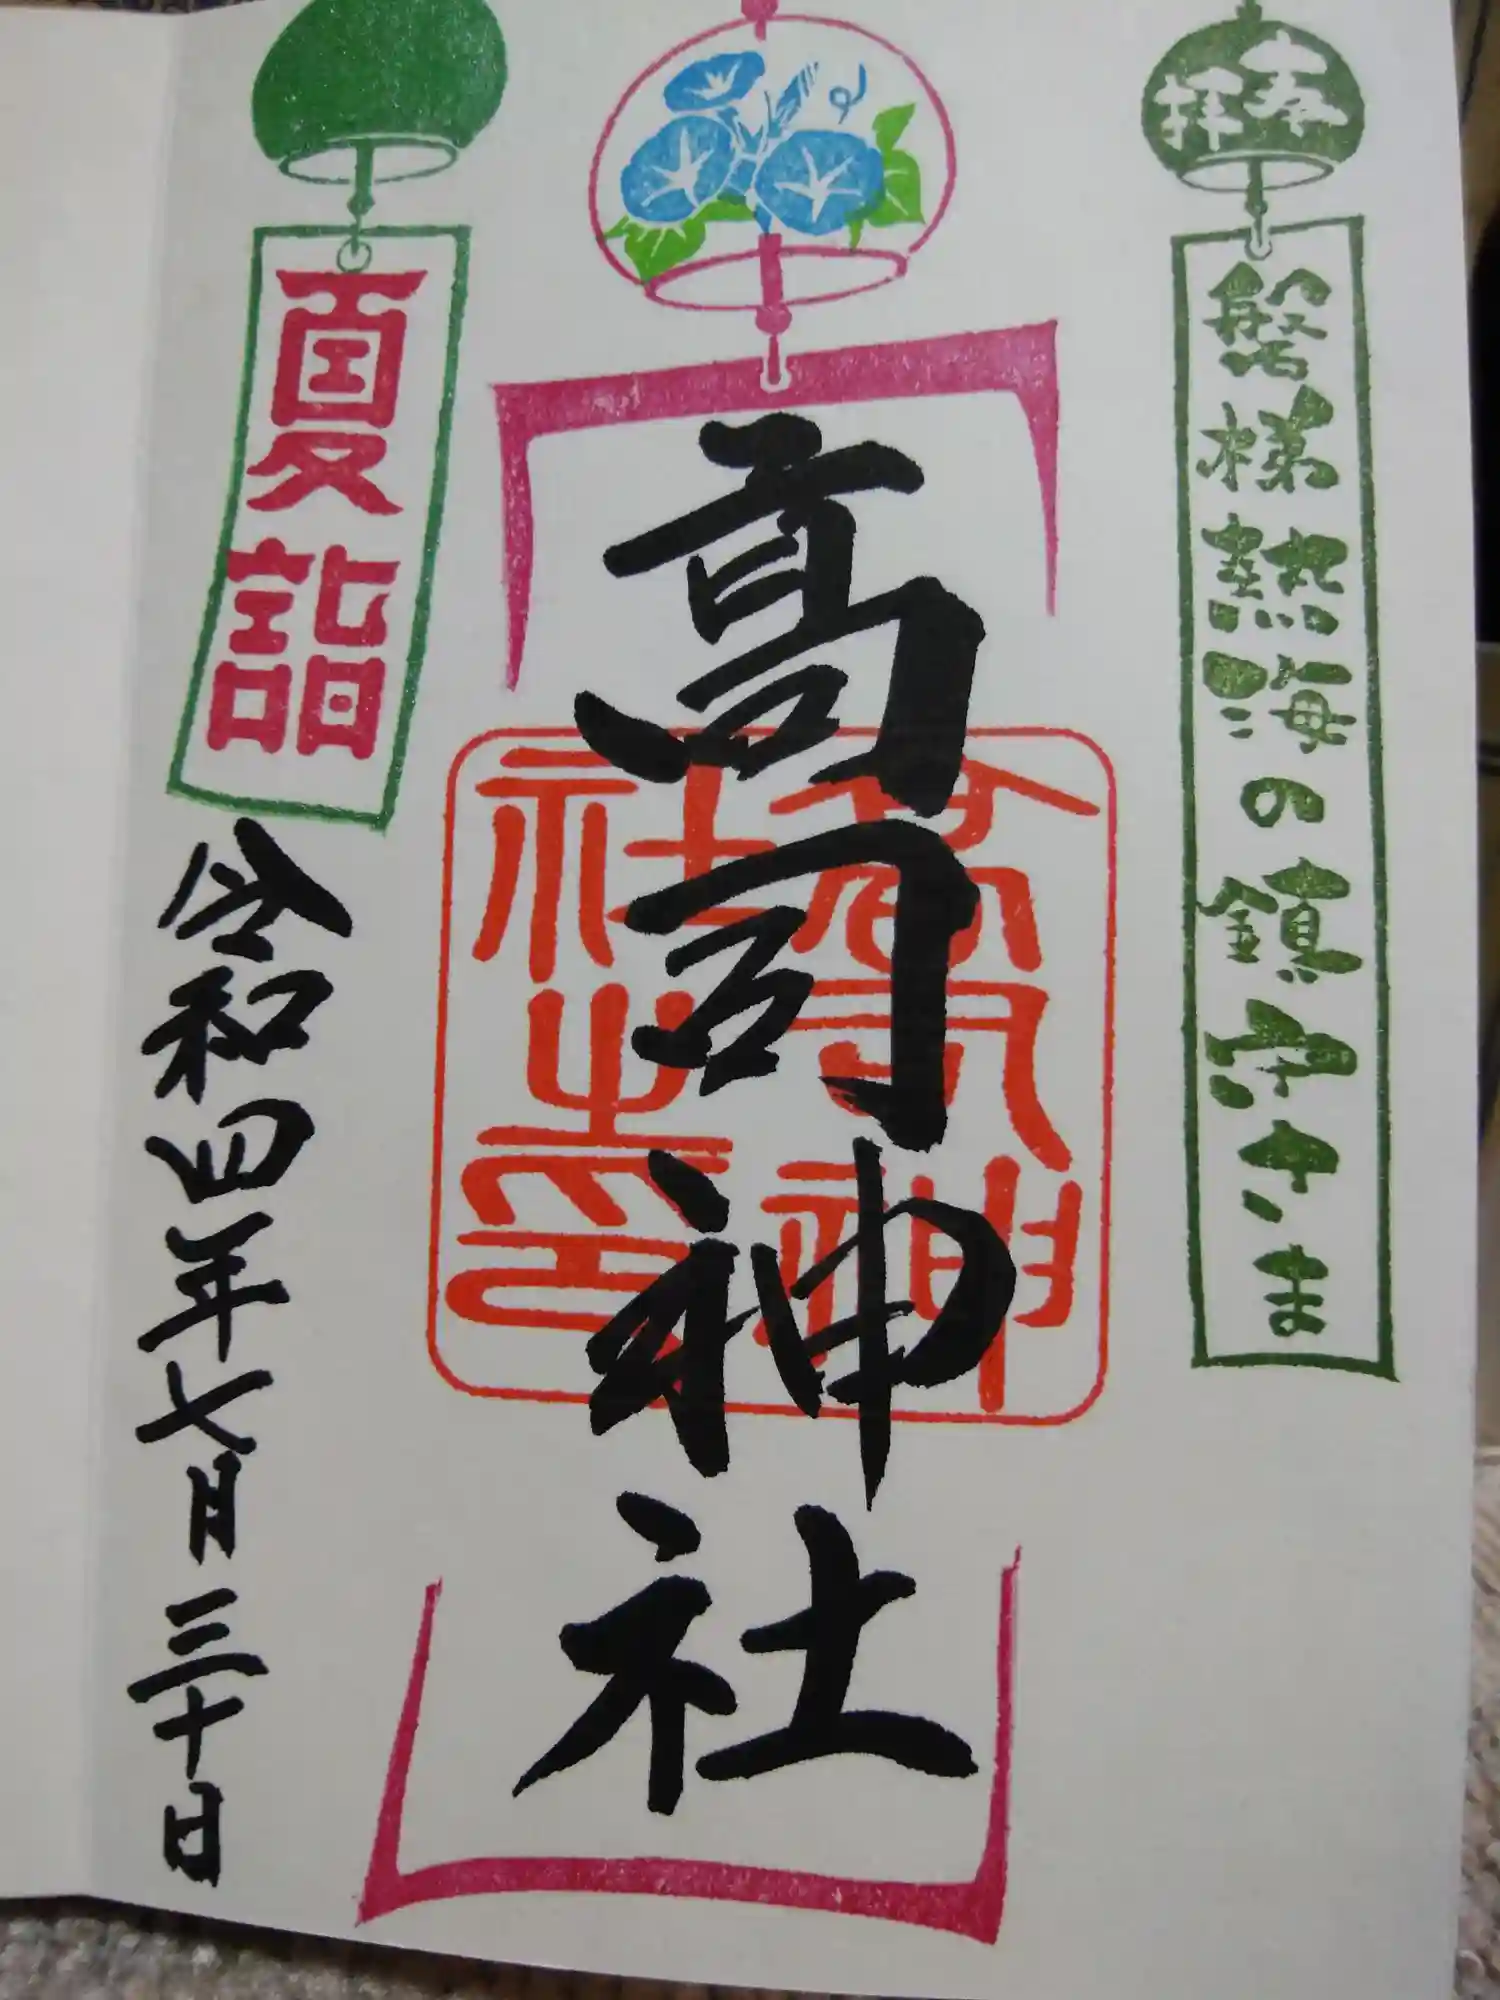 奉拝
磐梯熱海の鎮守さま
高司神社
高司神
社之印
夏詣
令和四年七月三十日